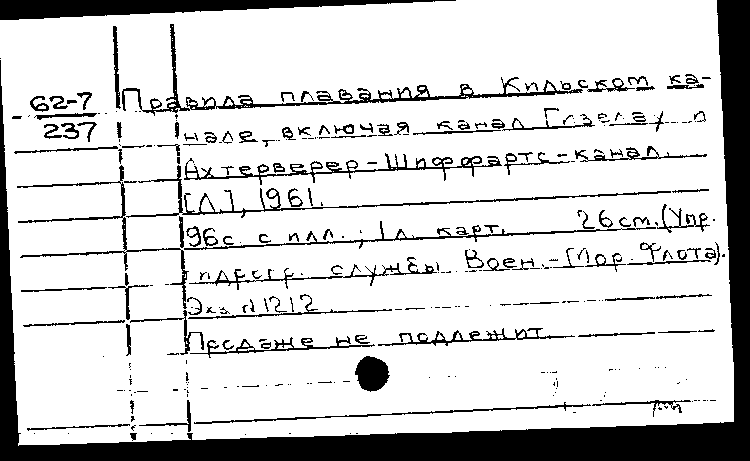 62-7
237
Правила плавания в Кильском ка-
нале, включая канал Гизелау и
Ахтерверер-Шиффартс-канал.
[Л.], 1961.
96с. с илл.; 1 л. карт. 26см. (Упр.
гидрогр. службы Воен.-Мор. Флота).
Экз. N1212.
Продаже не подлежит.